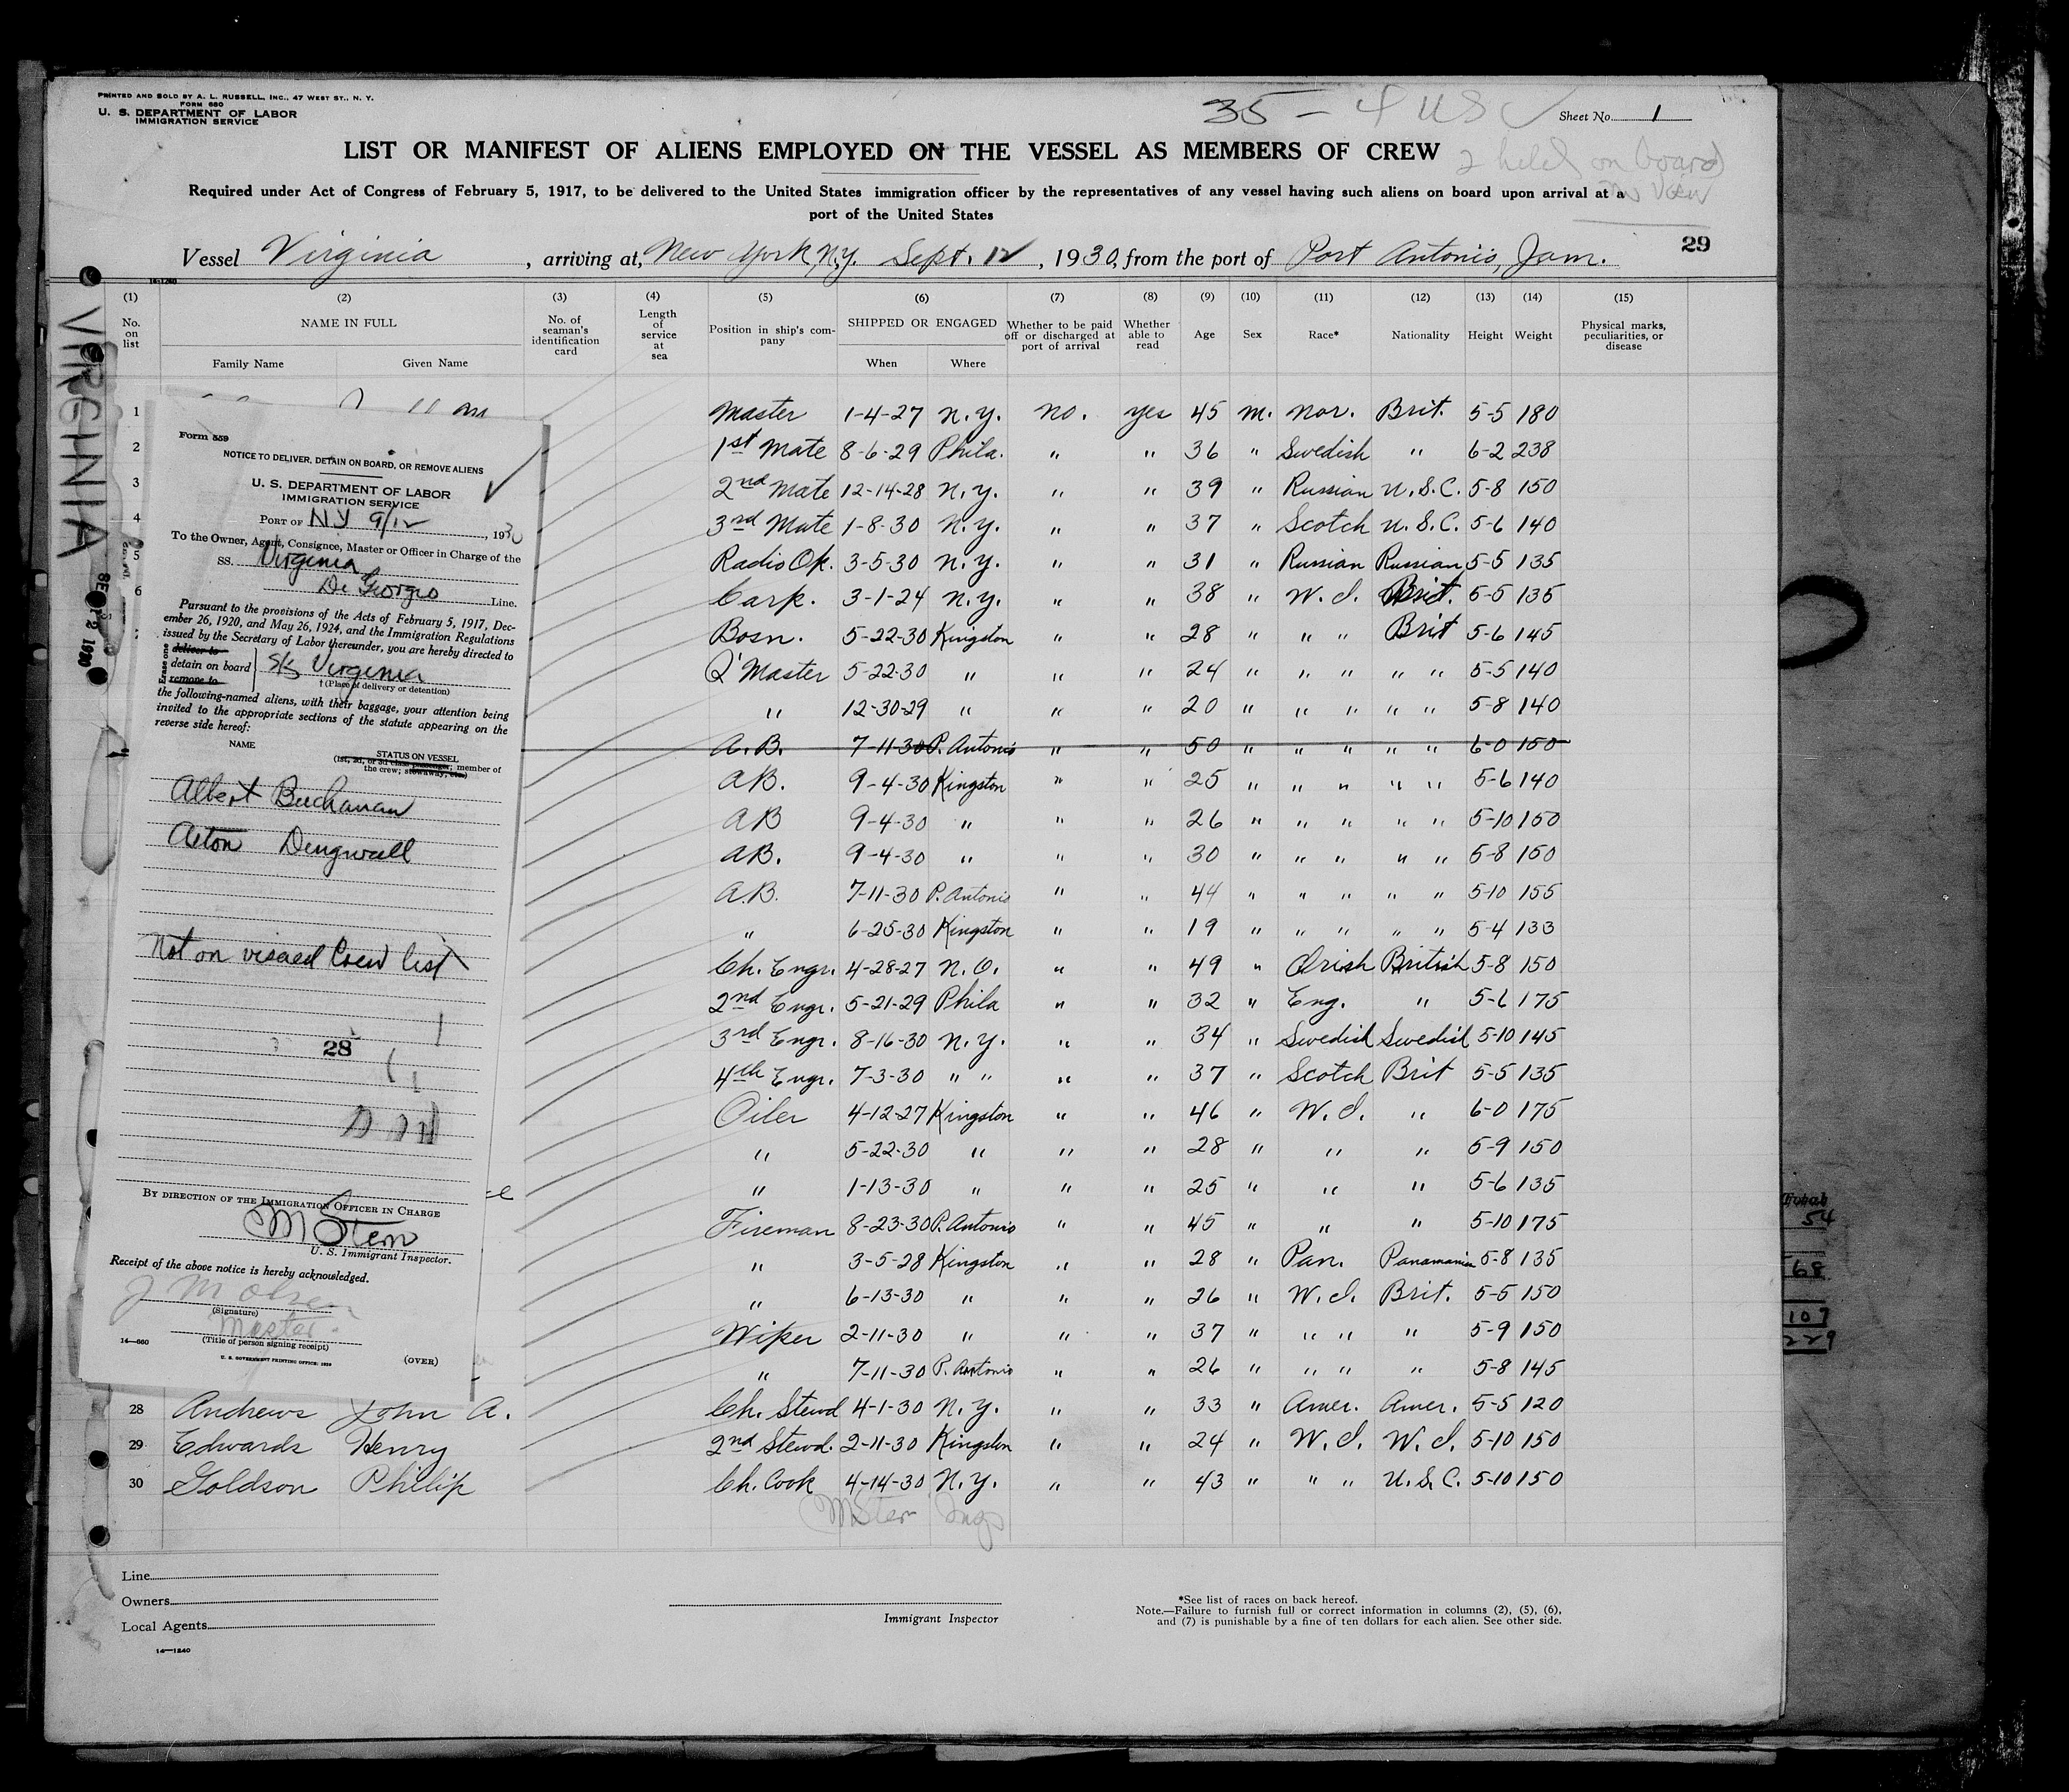 PRINTED AND SOLD BY A. L. RUSSELL, INC., 47 WEST ST., N. Y.
FORM 680
U. S. DEPARTMENT OF LABOR
IMMIGRATION SERVICE
35 – 4 USC
Sheet No. 1
LIST OR MANIFEST OF ALIENS EMPLOYED ON THE VESSEL AS MEMBERS OF CREW
2 held on board
Required under Act of Congress of February 5, 1917, to be delivered to the United States immigration officer by the representatives of any vessel having such aliens on board upon arrival at a
port of the United States
29
Vessel Virginia, arriving at, New York, N.Y. Sept. 12, 1930, from the port of Port Antonio, Jam.
14-1240
(1) (2) (3) (4) (5) (6) (7) (8) (9) (10) (11) (12) (13) (14) (15)
No. on list
NAME IN FULL
Family Name Given Name
No. of seaman's identification card
Length of service at sea
Position in ship's company
SHIPPED OR ENGAGED
When Where
Whether to be paid off or discharged at port of arrival
Whether able to read
Age
Sex
Race*
Nationality
Height
Weight
Physical marks, peculiarities, or disease
VIRGINIA
1 Master 1-4-27 N.Y. no. yes 45 m. Nor. Brit. 5-5 180
2 1st Mate 8-6-29 Phila. " " 36 " Swedish " 6-2 238
3 2nd Mate 12-14-28 N.Y. " " 39 " Russian U.S.C. 5-8 150
4 3rd Mate 1-8-30 N.Y. " " 37 " Scotch U.S.C. 5-6 140
5 Radio Op. 3-5-30 N.Y. " " 31 " Russian Russian 5-5 135
6 Carp. 3-1-24 N.Y. " " 38 " W.I. Brit. 5-5 135
Bosn. 5-22-30 Kingston " " 28 " " " Brit 5-6 145
Q'Master 5-22-30 " " " 24 " " " " " 5-5 140
" 12-30-29 " " " 20 " " " " " 5-8 140
A.B. 7-11-30 P. Antonio " " 50 " " " " " 6-0 150
AB. 9-4-30 Kingston " " 25 " " " " " 5-6 140
AB 9-4-30 " " " 26 " " " " " 5-10 150
AB. 9-4-30 " " " 30 " " " " " 5-8 150
A.B. 7-11-30 P. Antonio " " 44 " " " " " 5-10 155
" 6-25-30 Kingston " " 19 " " " " " 5-4 133
Ch. Engr. 4-28-27 N.O. " " 49 " Irish British 5-8 150
2nd Engr. 5-21-29 Phila " " 32 " Eng. " 5-6 175
3rd Engr. 8-16-30 N.Y. " " 34 " Swedish Swedish 5-10 145
4th Engr. 7-3-30 " " " " 37 " Scotch Brit 5-5 135
Oiler 4-12-27 Kingston " " 46 " W.I. " 6-0 175
" 5-22-30 " " " 28 " " " 5-9 150
" 1-13-30 " " " 25 " " " 5-6 135
Fireman 8-23-30 P. Antonio " " 45 " " " 5-10 175
" 3-5-28 Kingston " " 28 " Pan. Panamanian 5-8 135
" 6-13-30 " " " 26 " W.I. Brit. 5-5 150
Wiper 2-11-30 " " " 37 " " " " 5-9 150
" 7-11-30 P. Antonio " " 26 " " " " 5-8 145
28 Andrews John A. Ch. Stewd 4-1-30 N.Y. " " 33 " Amer. Amer. 5-5 120
29 Edwards Henry 2nd Stewd. 2-11-30 Kingston " " 24 " W.I. W.I. 5-10 150
30 Goldson Phillip Ch. Cook 4-14-30 N.Y. " " 43 " " " U.S.C. 5-10 150
M Stern Insp
Form 559
NOTICE TO DELIVER, DETAIN ON BOARD, OR REMOVE ALIENS
U. S. DEPARTMENT OF LABOR
IMMIGRATION SERVICE
PORT OF NY 9/12, 1930
To the Owner, Agent, Consignee, Master or Officer in Charge of the
SS. Virginia
Di Georgio Line.
Pursuant to the provisions of the Acts of February 5, 1917, Dec-
ember 26, 1920, and May 26, 1924, and the Immigration Regulations
issued by the Secretary of Labor thereunder, you are hereby directed to
Erase one
deliver to
detain on board S/S Virginia
remove to
†(Place of delivery or detention)
the following-named aliens, with their baggage, your attention being
invited to the appropriate sections of the statute appearing on the
reverse side hereof:
NAME
STATUS ON VESSEL
(1st, 2d, or 3d class passenger; member of
the crew; stowaway, etc.)
Albert Buchanan
Acton Dingwall
Not on visaed Crew list
28
BY DIRECTION OF THE IMMIGRATION OFFICER IN CHARGE
M Stern
U. S. Immigrant Inspector.
Receipt of the above notice is hereby acknowledged.
J M Olsen
(Signature)
Master.
(Title of person signing receipt)
14—660
U. S. GOVERNMENT PRINTING OFFICE: 1929
(OVER)
Total
54
68
107
229
Line
Owners
Local Agents
14—1240
Immigrant Inspector
*See list of races on back hereof.
Note.—Failure to furnish full or correct information in columns (2), (5), (6),
and (7) is punishable by a fine of ten dollars for each alien. See other side.